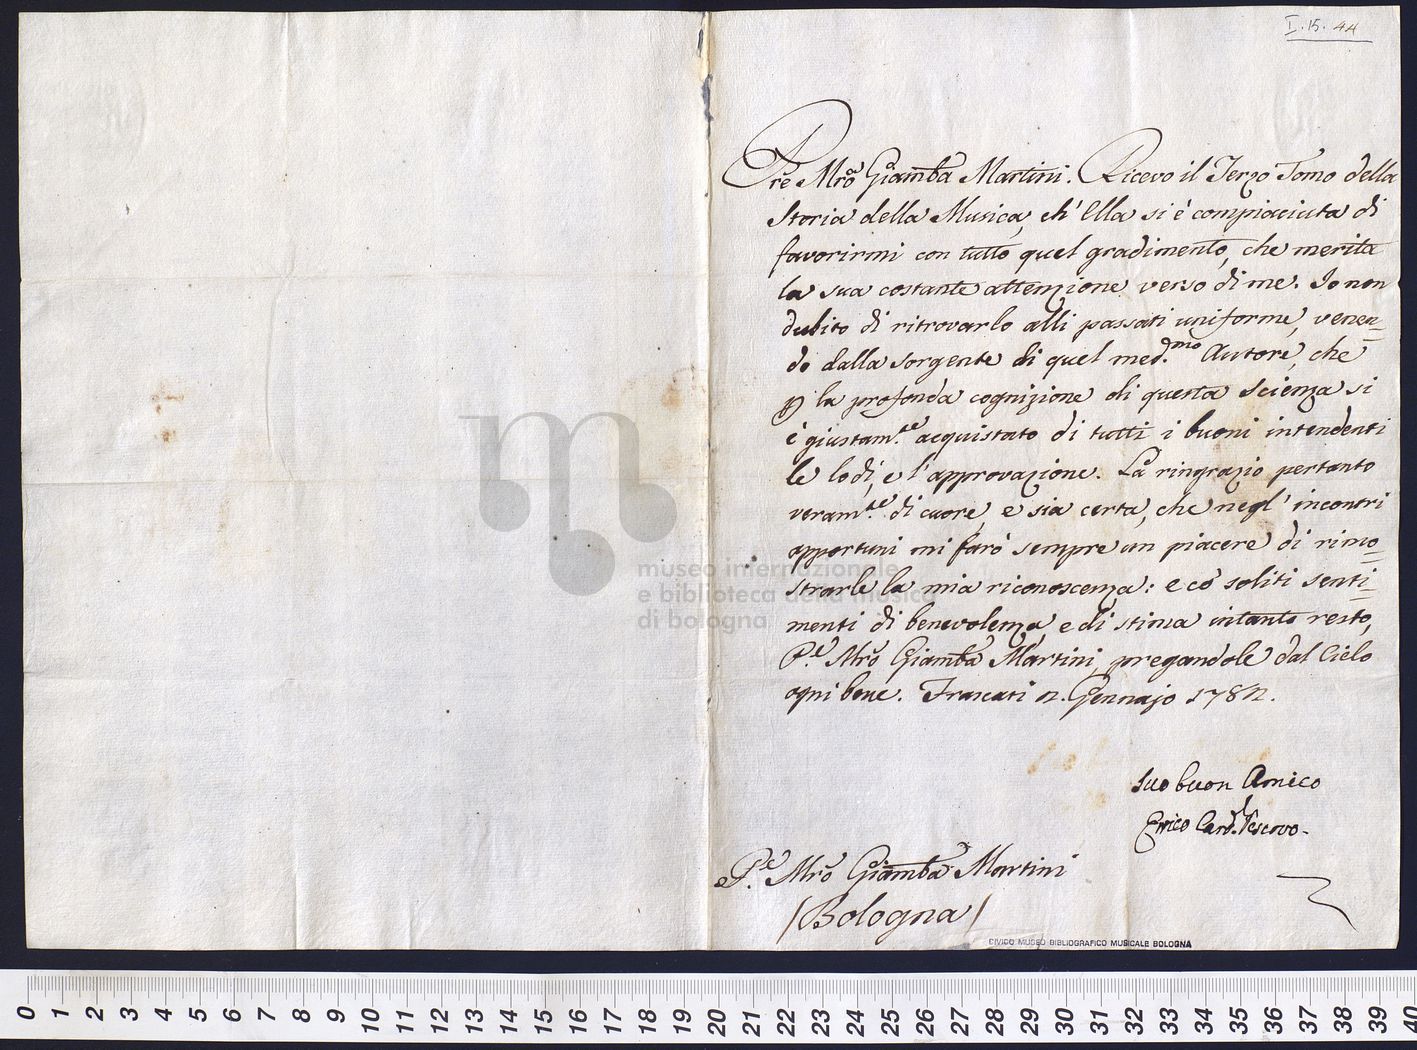 I. 15. 44
Pre Mro Giamba Martini. Ricevo il Terzo Tomo della
Storia della Musica, ch' Ella si è compiaciuta di
favorirmi con tutto quel gradimento, che merita
la sua costante attenzione verso di me. Io non
dubito di ritrovarlo alli passati uniforme, venen=
do dalla sorgente di quel med.mo Autore, che
p la profonda cognizione di questa Scienza si
è giustam.te acquistato di tutti i buoni intendenti
le lodi, e l'approvazione. La ringrazio pertanto
veram.te di cuore, e sia certa, che negl' incontri
opportuni mi farò sempre un piacere di rimo=
strarle la mia riconoscenza: e co' soliti senti=
menti di benevolenza, e di stima intanto resto,
P.e Mro Giamba Martini, pregandole dal Cielo
ogni bene. Frascati Gennajo
Suo buon Amico
Errico Card. Vescovo.
P.e Mro Giamba Martini
/Bologna/
CIVICO MUSEO BIBLIOGRAFICO MUSICALE BOLOGNA
museo internazionale
e biblioteca della musica
di bologna
0 1 2 3 4 5 6 7 8 9 10 11 12 13 14 15 16 17 18 19 20 21 22 23 24 25 26 27 28 29 30 31 32 33 34 35 36 37 38 39 40